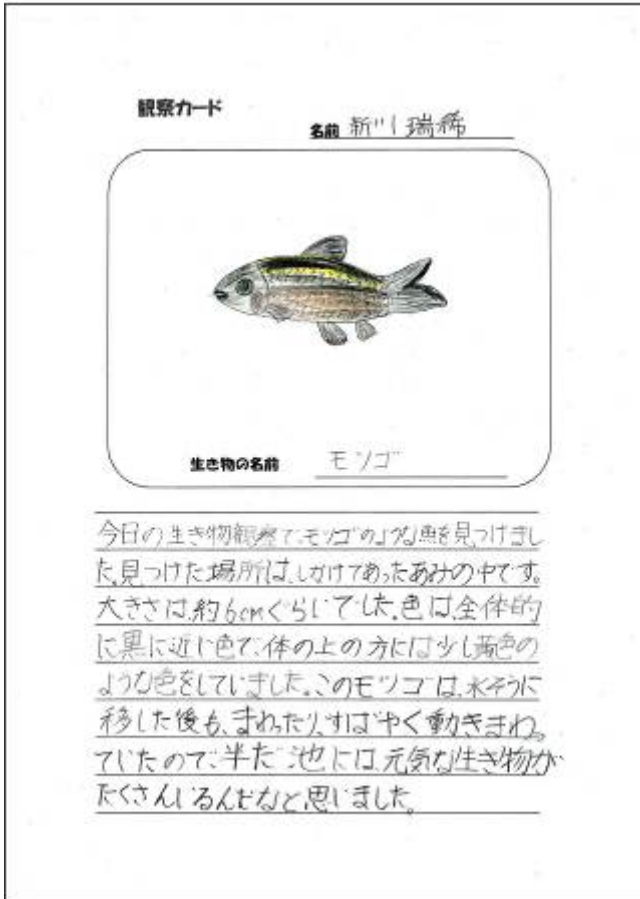 観察カード
名前 新川瑞稀
生き物の名前 モツゴ
今日の生き物観察で、モツゴのような魚を見つけまし
た。見つけた場所は、しかけてあったあみの中です。
大きさは、約6cmぐらいでした。色は、全体的
に黒に近い色で、体の上の方には少し黄色の
ような色をしていました。このモツゴは、水そうに
移した後も、まわったり、すばやく動きまわっ
ていたので、半だ池には、元気な生き物が
たくさんいるんだなと思いました。